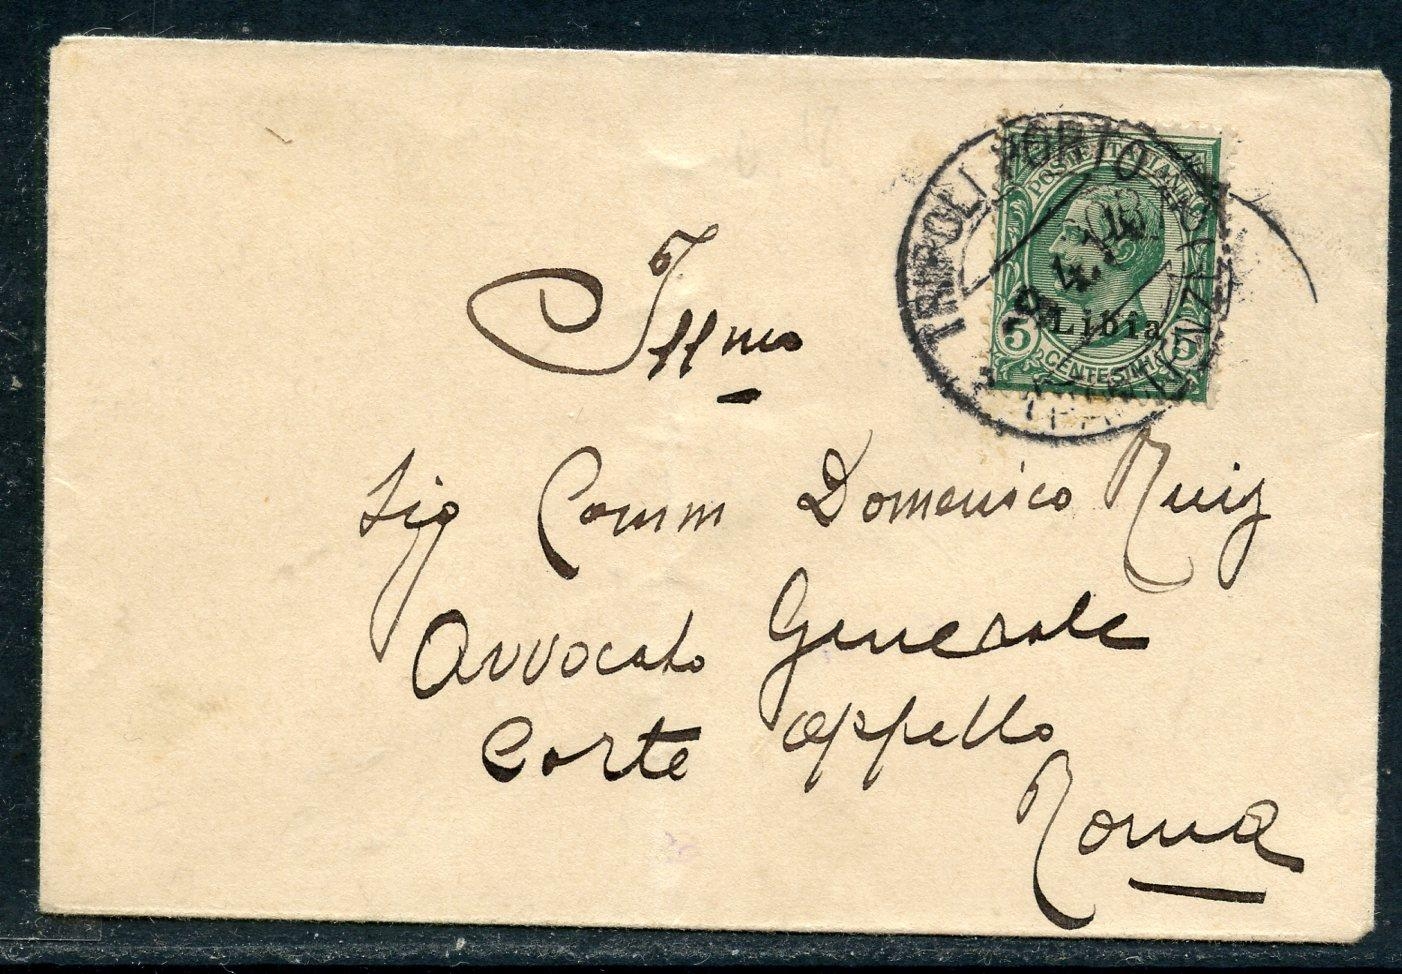 TRIPOLI PORTO
POSTE ITALIANE
Libia
5 5
CENTESIMI
Illmo
Sig Comm Domenico Ruiz
Avvocato Generale
Corte appello
Roma